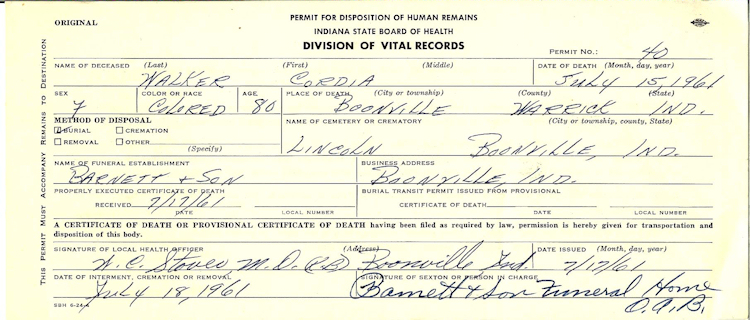 ORIGINAL
PERMIT FOR DISPOSITION OF HUMAN REMAINS
INDIANA STATE BOARD OF HEALTH
DIVISION OF VITAL RECORDS
PERMIT NO.: 40
NAME OF DECEASED (Last) (First) (Middle) DATE OF DEATH (Month, day, year)
WALKER CORDIA JULY 15, 1961
SEX COLOR OR RACE AGE PLACE OF DEATH (City or township) (County) (State)
F COLORED 80 BOONVILLE WARRICK IND.
METHOD OF DISPOSAL NAME OF CEMETERY OR CREMATORY (City or township, county, State)
BURIAL CREMATION
REMOVAL OTHER
(Specify)
LINCOLN BOONVILLE, IND.
NAME OF FUNERAL ESTABLISHMENT BUSINESS ADDRESS
BARNETT & SON BOONVILLE, IND.
PROPERLY EXECUTED CERTIFICATE OF DEATH BURIAL TRANSIT PERMIT ISSUED FROM PROVISIONAL
RECEIVED 7/17/61 CERTIFICATE OF DEATH
DATE LOCAL NUMBER DATE LOCAL NUMBER
A CERTIFICATE OF DEATH OR PROVISIONAL CERTIFICATE OF DEATH having been filed as required by law, permission is hereby given for transportation and
disposition of this body.
SIGNATURE OF LOCAL HEALTH OFFICER (Address) DATE ISSUED (Month, day, year)
W. C. Stover M.D. Boonville Ind. 7/17/61
DATE OF INTERMENT, CREMATION OR REMOVAL SIGNATURE OF SEXTON OR PERSON IN CHARGE
July 18, 1961 Barnett & Son Funeral Home
O.A.B.
SBH 6-24-4
This Permit Must Accompany Remains to Destination